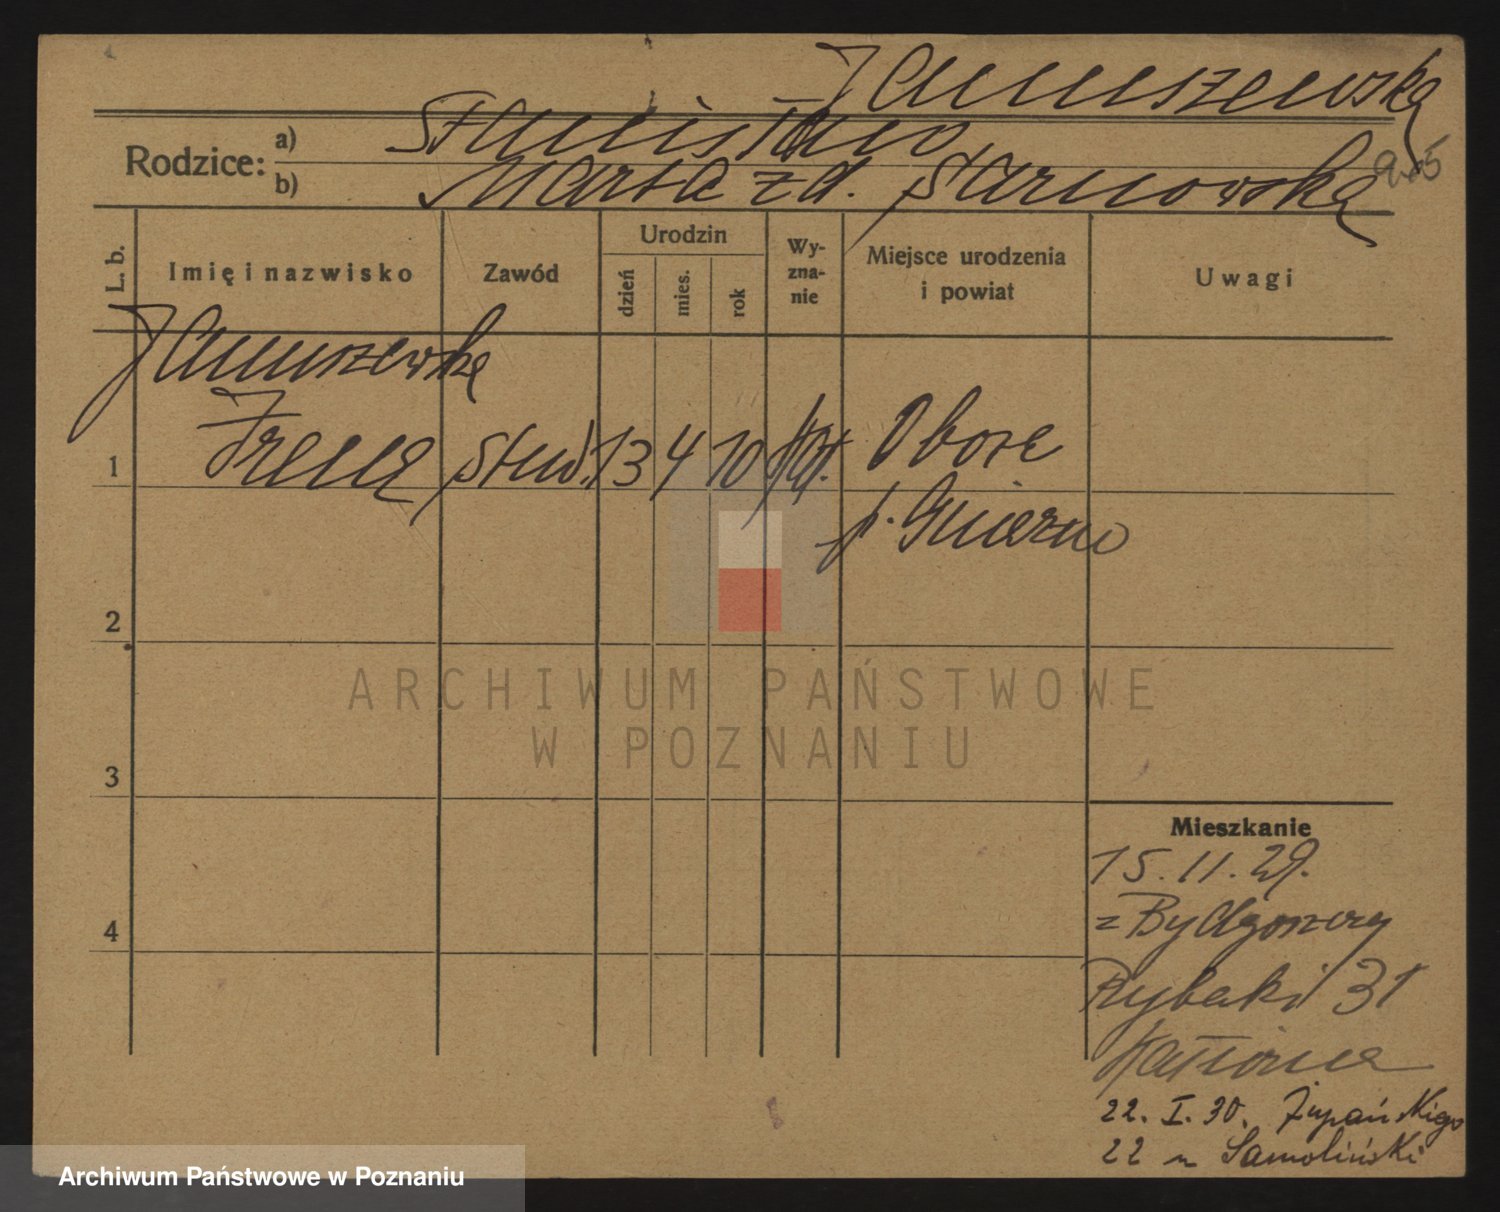 Januszewska
Rodzice:
a) Stanisław
b) Marta z d. Sarnowska
L. b.
Imię i nazwisko
Zawód
Urodzin
dzień
mies.
rok
Wy-
zna-
nie
Miejsce urodzenia
i powiat
Uwagi
Januszewska
1 Irena stud. 13 4 10 kat. Obora
p. Gniezno
2
3
4
ARCHIWUM PAŃSTWOWE
W POZNANIU
Mieszkanie
15.11.29.
z Bydgoszczy
Rybaki 31
22. I. 30. Żupańskiego
22 u Samoliński
Archiwum Państwowe w Poznaniu